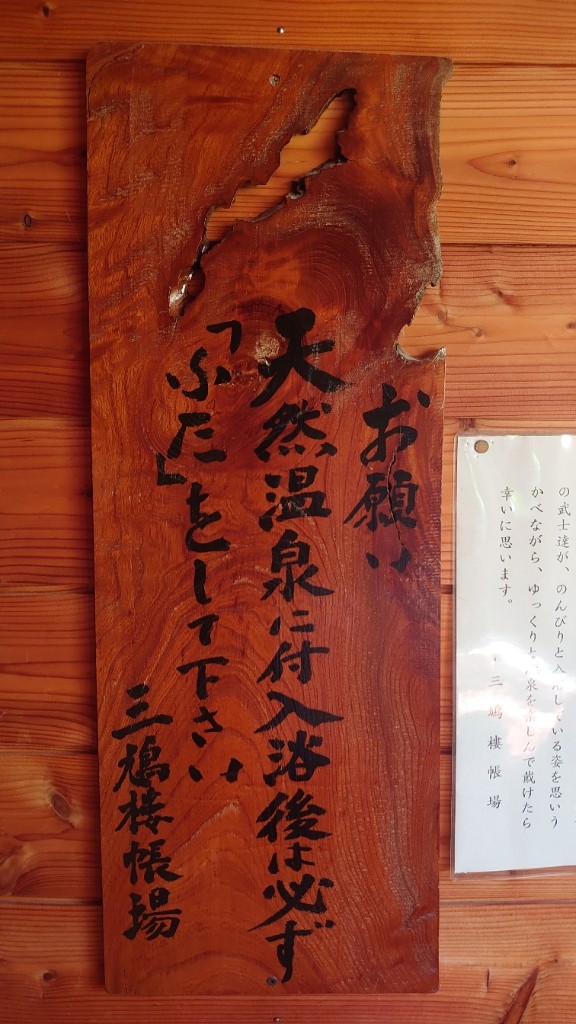 お願い
天然温泉に付入浴後は必ず
「ふた」をして下さい
三鳩楼帳場
の武士達が、のんびりと入浴している姿を思いう
かべながら、ゆっくりと温泉を楽しんで戴けたら
幸いに思います。
三鳩樓帳場